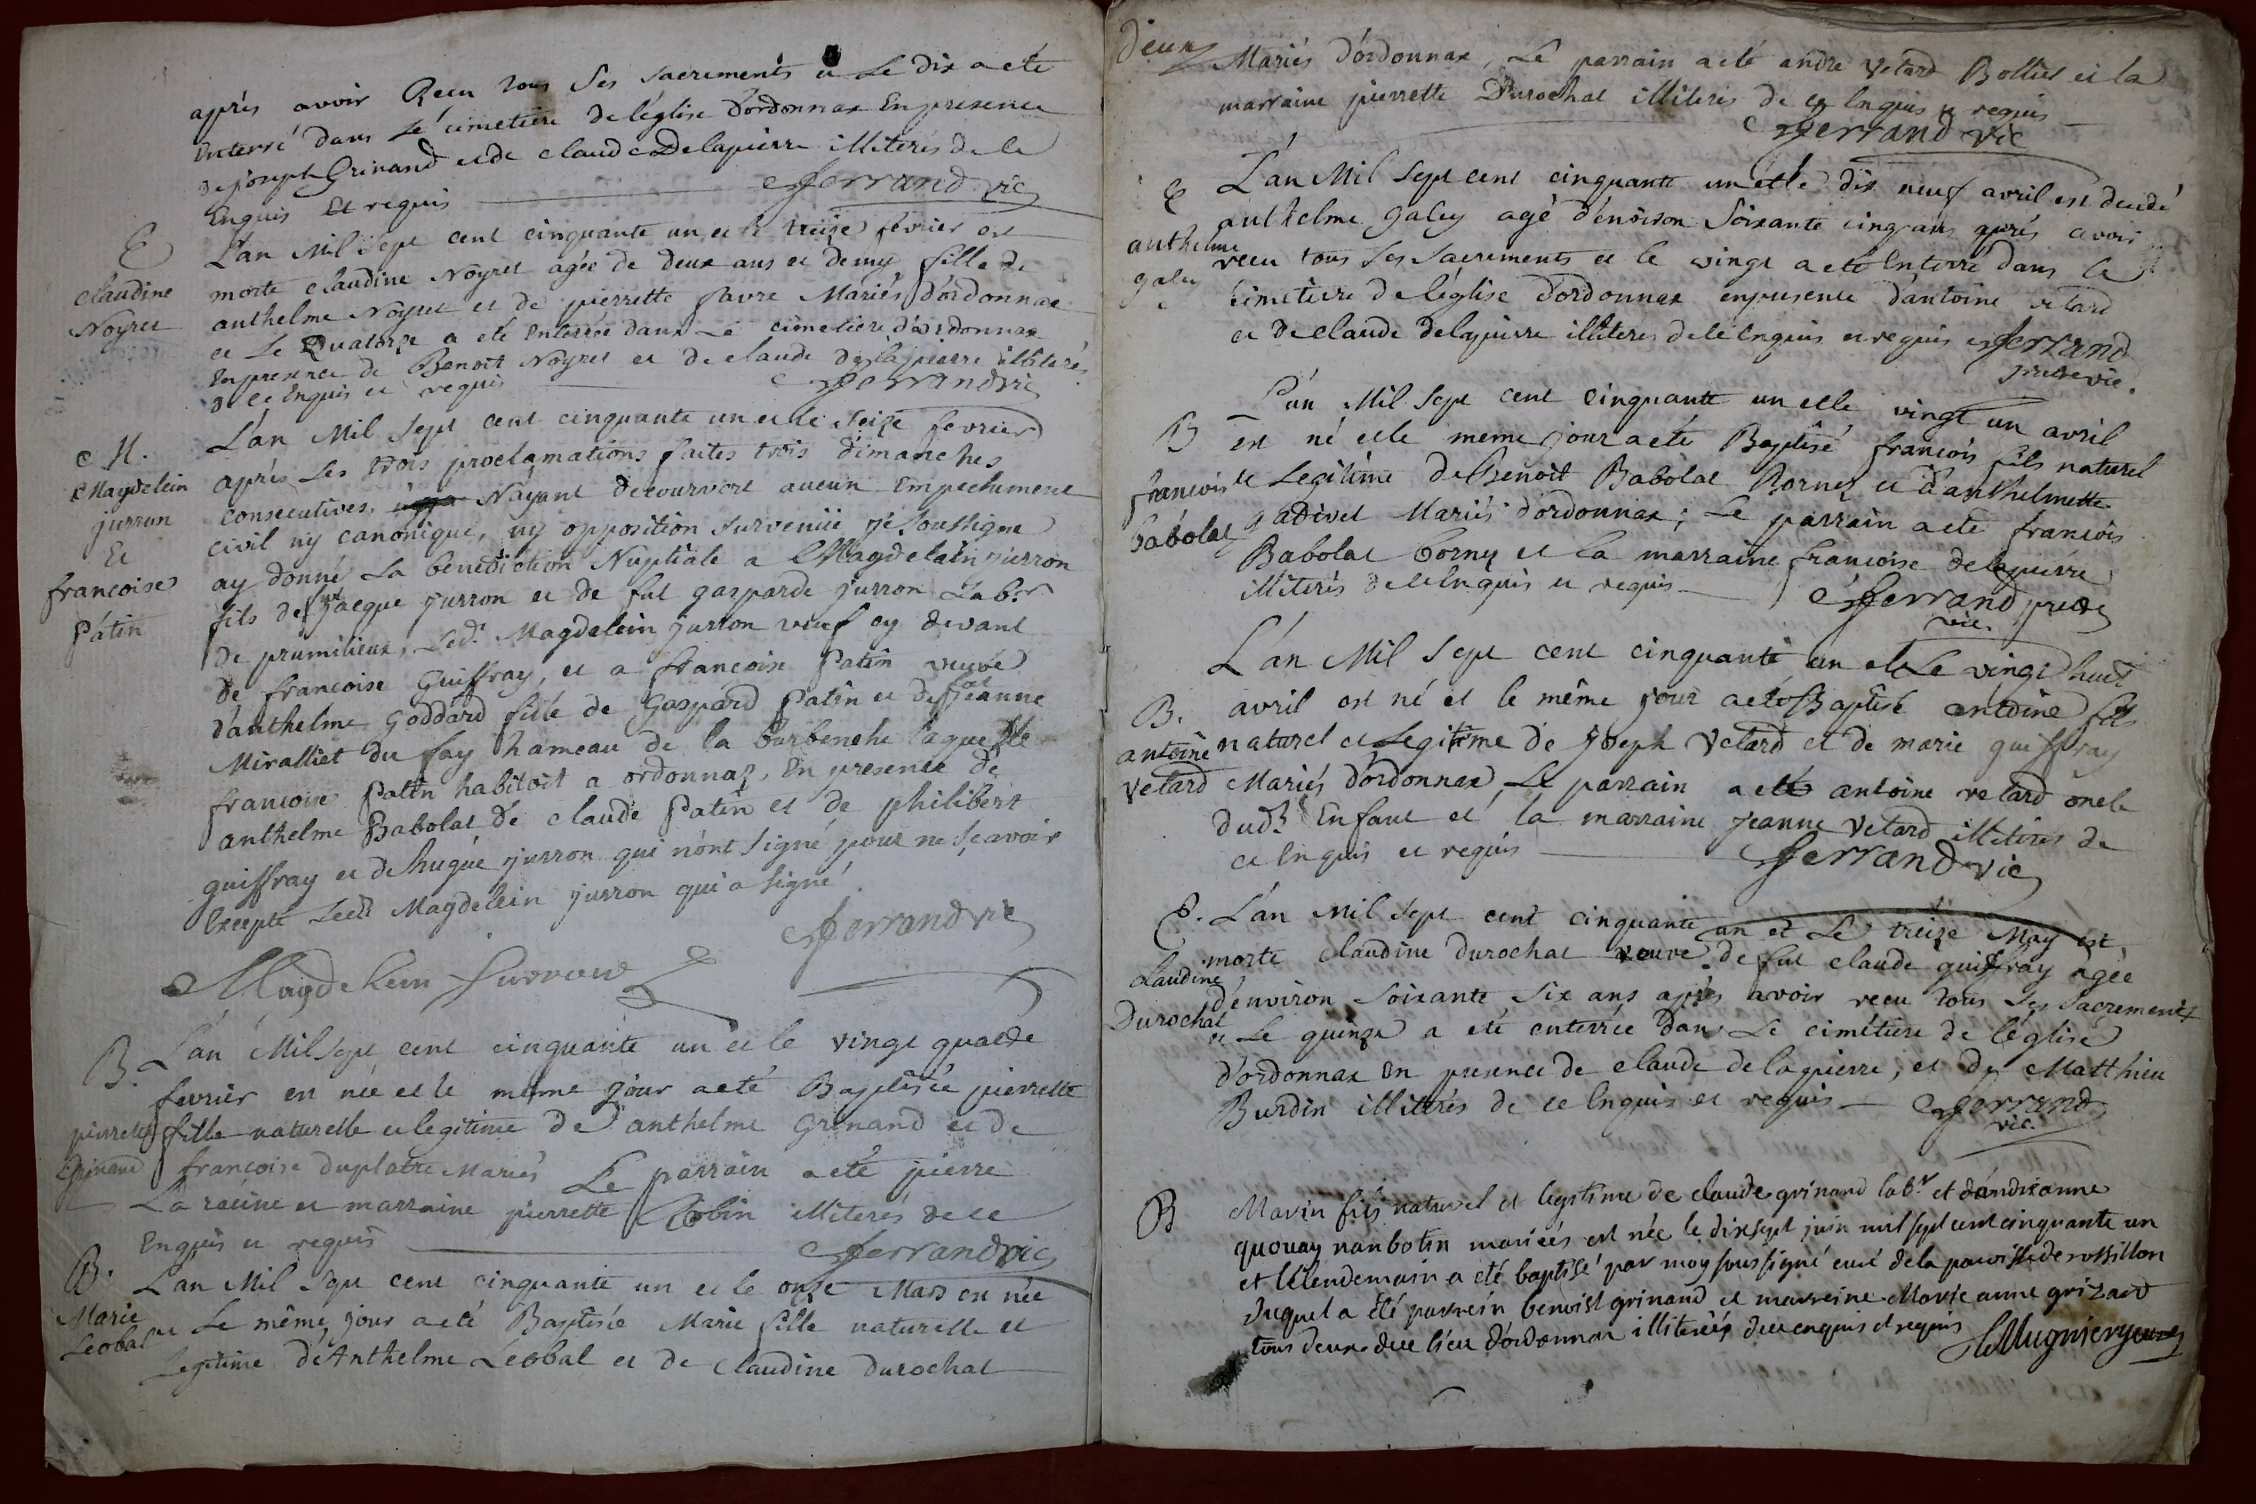 après avoir Recu tous Ses sacrements et Le dix a eté
Enterré dans Le cimetiere de l'église d'ordonnax En presence
de joseph Grinand et de claude Delapierre illiterés de ce
Enquis Et requis ferrand vic
E
claudine
Noyret
L'an Mil sept cent cinquante un et le treize fevrier est
morte claudine Noyret agée de deux ans et demy fille de
anthelme Noyret et de pierrette favre Mariés d'ordonnax
et Le Quatorze a eté Enterrée dans Le cimetiere d'ordonnax
En presence de Benoit Noyret et de claude delapierre illiterés
de ce Enquis et requis ferrand vic
M.
Magdelein
jurron
Et
francoise
Patin
L'an Mil sept cent cinquante un et le seize fevrier
après les trois proclamations faites trois dimanches
consecutives, N'ayant decouvert aucun Empechement
civil ny canonique, ny opposition survenüe je soussigné
ay donné La bénédiction Nuptiale a Magdelain jurron
fils de jacque jurron et de fut gasparde jurron Lab.r
de prumilieux, Led.t Magdelein jurron veuf cy devant
de francoise Guiffray, et a francoise Patin veuve
d'anthelme Goddard fille de Gaspard Patin et de jeanne
Miralliet du fay hameau de la burbenche laquelle
francoise Patin habitoit a ordonnax, En presence de
anthelme Babolat de claude Patin et de philibert
guiffray et de hugue jurron qui n'ont signé pour ne sçavoir
Excepté Ledt Magdelein jurron qui a signé
ferrand vic
Magdelein jurron
B.
pierrette
Grinand
L'an Mil sept cent cinquante un et le vingt quatre
fevrier est née et le meme jour a eté Baptisée pierrette
fille naturelle et legitime de d'anthelme Grinand et de
francoise duplatre Mariés Le parrain a eté pierre
La racine et marraine pierrette Robin illiterés de ce
Enquis et requis ferrand vic
B.
Marie
Leobal
L'an Mil sept cent cinquante un et le onze Mars est née
et Le même jour a eté Baptisée Marie fille naturelle et
Legitime d'Anthelme Leobal et de Claudine durochat
deux
Mariés d'ordonnax, Le parrain a eté andré Vetard Bollies et la
marraine pierrette Durochat illiterés de ce Enquis et requis
ferrand vic
E
anthelme
galey
L'an Mil sept cent cinquante un et le dix neuf avril est decedé
anthelme galey agé d'environ soixante cinq ans après avoir
recu tous ses sacrements et le vingt a eté Enterré dans le
cimetiere de l'église d'ordonnax en presence d'antoine vetard
et de claude delapierre illiteres de ce Enquis et requis ferrand
pretre vic.
B
francois
Babolat
L'an Mil sept cent cinquante un et le vingt un avril
est né et le meme jour a eté Baptisé francois fils naturel
et Legitime de Benoit Babolat Borney et d'anthelmette
gadivet Mariés d'ordonnax; Le parrain a eté francois
Babolat borny et la marraine francoise delapierre
illiterés de ce Enquis et requis ferrand pretre
vic.
B.
antoine
Vetard
L'an Mil sept cent cinquante un et Le vingt huit
avril est né et le même jour a eté Baptisé antoine fils
naturel et Legitime de joseph Vetard et de marie guiffray
Mariés d'ordonnax, Le parrain a eté antoine vetard oncle
dudt Enfant et la marraine jeanne Vetard illiteres de
ce Enquis et requis ferrand vic
E.
Claudine
Durochat
L'an Mil sept cent cinquante un et Le treize May est
morte claudine durochat veuve de fut claude guiffray agée
d'environ soixante six ans après avoir recu tous ses sacrements
et Le quinze a eté enterrée dans Le cimétiere de l'église
d'ordonnax En presence de claude de lapierre, et de Matthieu
Burdin illiterés de ce Enquis et requis ferrand
vic.
B
Marin fils naturel et legitime de claude grinand lab.r et d'andrianne
quouay nanbotin mariées est née le dixsept juin mil sept cent cinquante un
et le lendemain a eté baptisé par moy soussigné curé de la parroisse de rossillon
duquel a été parrein benoist grinand et marreine Marie anne grizard
tous deux de ce lieu d'ordonnax illiterés de ce enquis et requis Mugnier curé